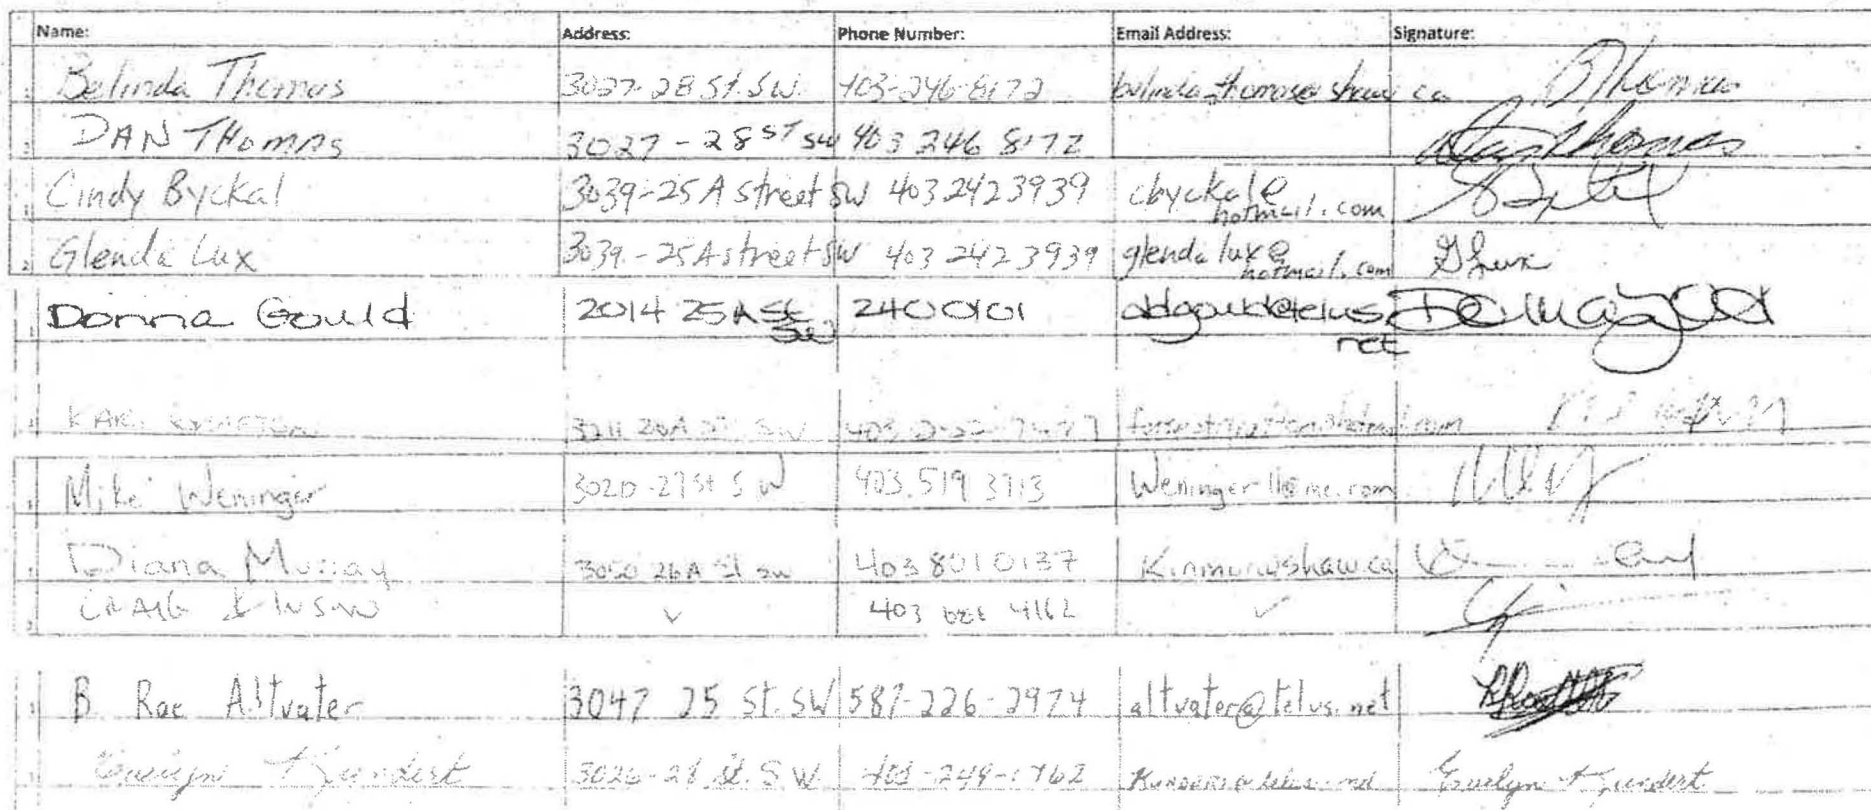 Name: Address: Phone Number: Email Address: Signature:
Belinda Thomas 3027-28 St. SW. 403-246-8172 belinda.thomas@shaw.ca B Thomas
DAN THOMAS 3027-28 ST SW 403 246 8172 Dan Thomas
Cindy Byckal 3039-25 A street SW 403 242 3939 cbyckal@
hotmail.com
Glenda Lux 3039-25 A street SW 403 242 3939 glenda lux@
hotmail.com G Lux
Donna Gould 2014 25 A St 2400101 Donna Gould
SW net
3211 26A SW
Mike Weninger 3020-27 St SW 403.519 3713
Diana Murray 3050 26A St SW 403 801 0137
CRAIG 403 4162
B. Rae Altvater 3047 25 St. SW 587-226-2974 altvater@telus.net
Evelyn Kundert 3026-28 St. S W. 403-249-1762 Evelyn Kundert